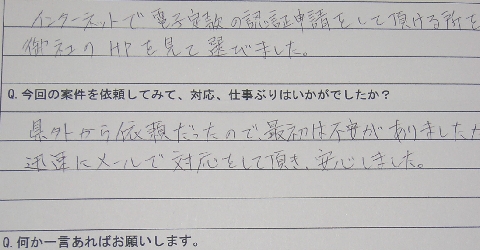 インターネットで電子定款の認証申請をして頂ける所を
御社のHPを見て選びました。
Q.今回の案件を依頼してみて、対応、仕事ぶりはいかがでしたか？
県外から依頼だったので、最初は不安がありましたが
迅速にメールで対応をして頂き、安心しました。
Q.何か一言あればお願いします。